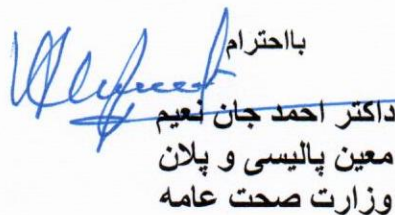 بااحترام
داکتر احمد جان نعیم
معین پالیسی و پلان
وزارت صحت عامه